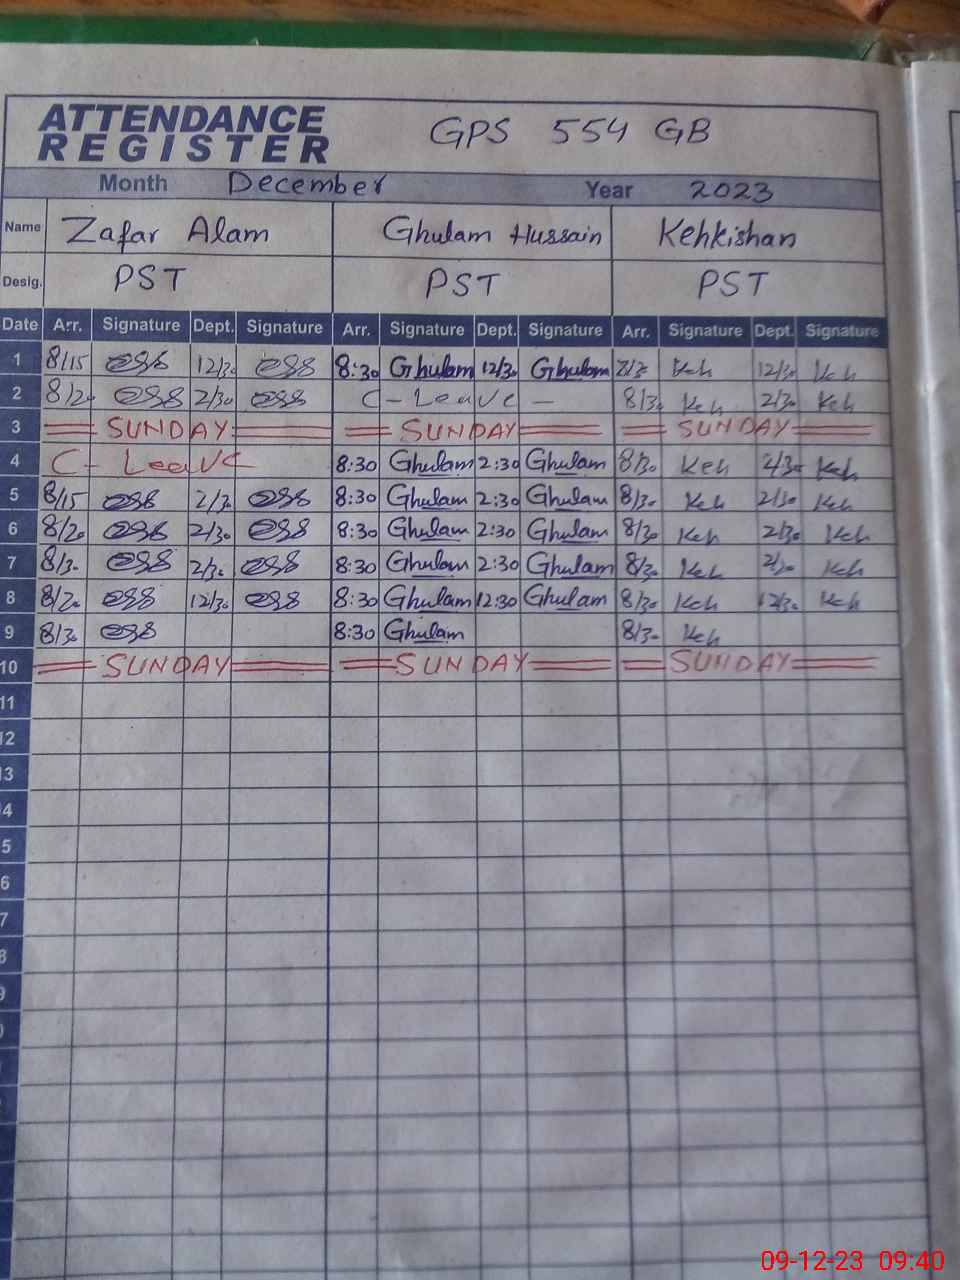 ATTENDANCE REGISTER GPS 554 GB
Month December Year 2023
Name Zafar Alam Ghulam Hussain Kehkishan
Desig. PST PST PST
Date Arr. Signature Dept. Signature Arr. Signature Dept. Signature Arr. Signature Dept. Signature
1 8/15 12/30 8:30 Ghulam 12/30 Ghulam Keh 12/30 Keh
2 8/20 2/30 C-Leave - 8/30 Keh 2/30 Keh
3 SUNDAY SUNDAY SUNDAY
4 C-Leave 8:30 Ghulam 2:30 Ghulam 8/30 Keh 2/30 Keh
5 8/15 2/30 8:30 Ghulam 2:30 Ghulam 8/30 Keh 2/30 Keh
6 8/20 2/30 8:30 Ghulam 2:30 Ghulam 8/30 Keh 2/30 Keh
7 8/30 2/30 8:30 Ghulam 2:30 Ghulam 8/30 Keh 2/30 Keh
8 8/20 12/30 8:30 Ghulam 12:30 Ghulam 8/30 Keh 12/30 Keh
9 8/30 8:30 Ghulam 8/30 Keh
10 SUNDAY SUNDAY SUNDAY
11
12
13
4
5
6
7
8
9
09-12-23 09:40